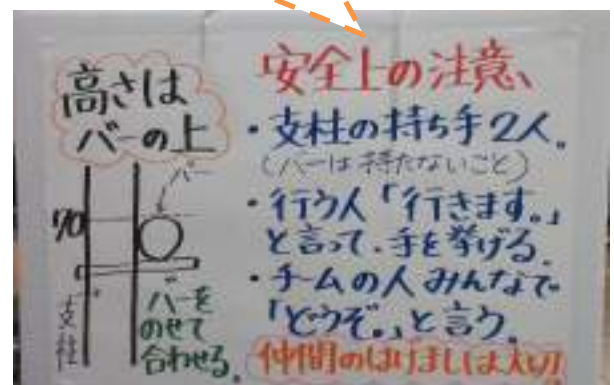 高さは
バーの上
バー
70
支柱
バーを
のせて
合わせる。
安全上の注意、
・支柱の持ち手2人。
(バーは持たないこと)
・行う人「行きます。」
と言って、手を挙げる。
・チームの人みんなで
「どうぞ。」と言う。
仲間のはげましは大切